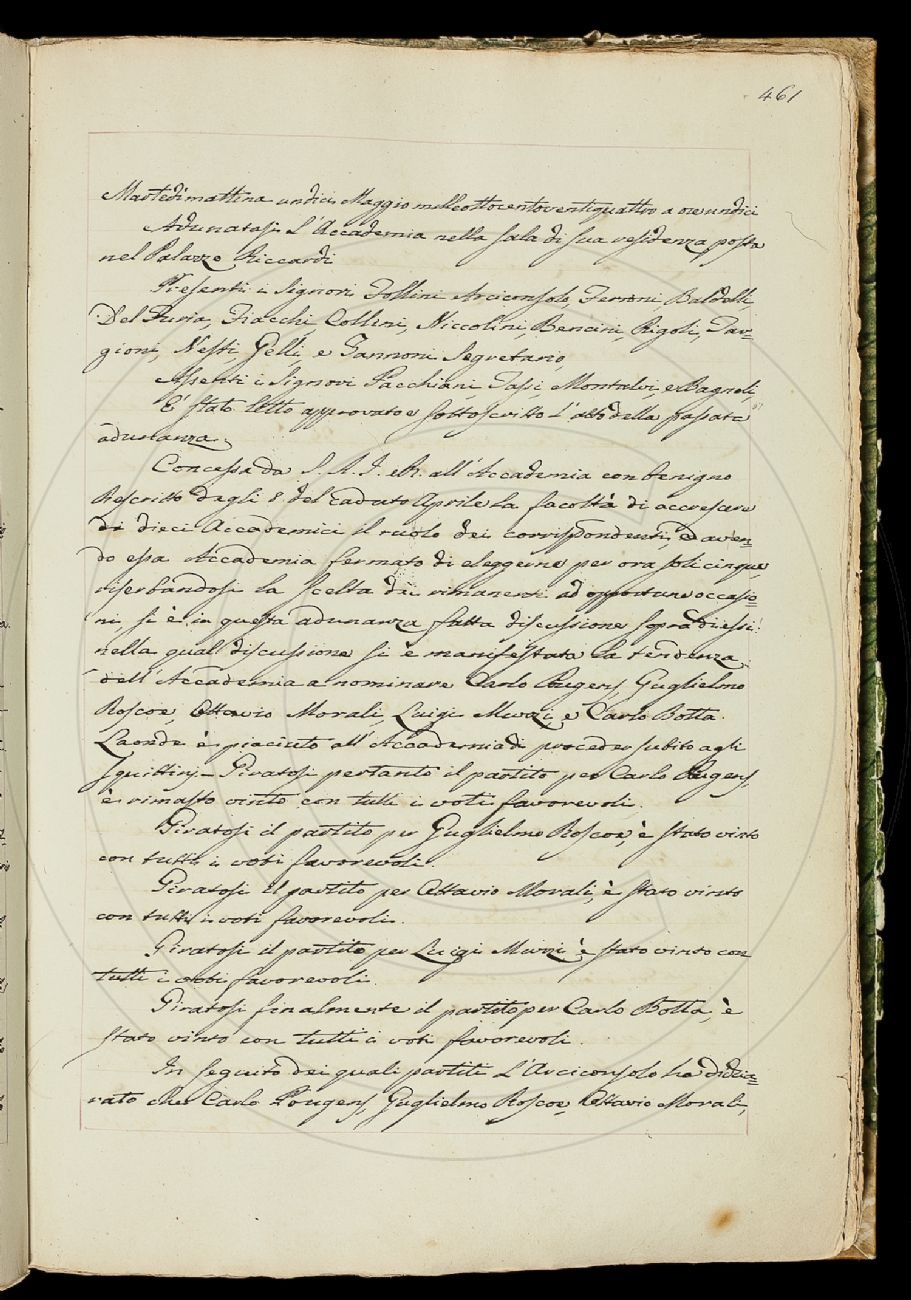 461
Martedì mattina undici Maggio milleottocentoventiquattro a ore undici
Adunatasi l'Accademia nella sala di sua residenza posta
nel Palazzo Riccardi
Presenti i Signori Follini Arciconsolo, Ferroni Baldelli,
Del Furia, Fiacchi, Collini, Niccolini, Bencini, Rigoli, Tar=
gioni, Nesti, Gelli, e Zannoni Segretario,
Assenti i Signori Pacchiani, Montalvi, e Bagnoli,
E' stato letto approvato e sottoscritto l'atto della passata
adunanza.
Concessa da S. A. I. e R. all'Accademia con benigno
Rescritto degli 8 del caduto Aprile la facoltà di accrescere
di dieci Accademici il ruolo dei corrispondenti, ed aven=
do essa Accademia fermato di eleggerne per ora soli cinque,
riserbandosi la scelta dei rimanenti ad opportune occasio=
ni, si è in questa adunanza fatta discussione sopra di essi:
nella qual discussione si è manifestata la tendenza
dell'Accademia a nominare Carlo Pougens, Guglielmo
Roscoe, Ottavio Morali, Luigi Muzzi, e Carlo Botta.
Laonde è piaciuto all'Accademia di proceder subito agli
squittinj. Giratosi pertanto il partito per Carlo Pougens,
è rimasto vinto con tutti i voti favorevoli.
Giratosi il partito per Guglielmo Roscoe, è stato vinto
con tutti i voti favorevoli
Giratosi il partito per Ottavio Morali, è stato vinto
con tutti i voti favorevoli.
Giratosi il partito per Luigi Muzzi è stato vinto con
tutti i voti favorevoli.
Giratosi finalmente il partito per Carlo Botta, è
stato vinto con tutti i voti favorevoli.
In seguito dei quali partiti l'Arciconsolo ha dichia=
rato che Carlo Pougens, Guglielmo Roscoe, Ottavio Morali,